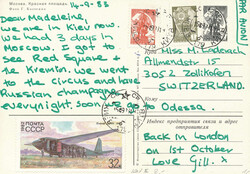 14-9-83
Москва. Красная площадь
Dear Madeleine,
we are in Kiev now.
We had 3 days in
Moscow. I got to
see Red Square &
the Kremlin. We went
to the circus and have
Russian champagne
everynight, soon we go to Odessa.
ПОЧТА
СССР
32
Miss M.
Allmendstr 15
3052 Zollikofen
SWITZERLAND.
PAR AVION
Индекс предприятия связи и адрес
отправителя
Back in London
on 1st October
Love Gill. x